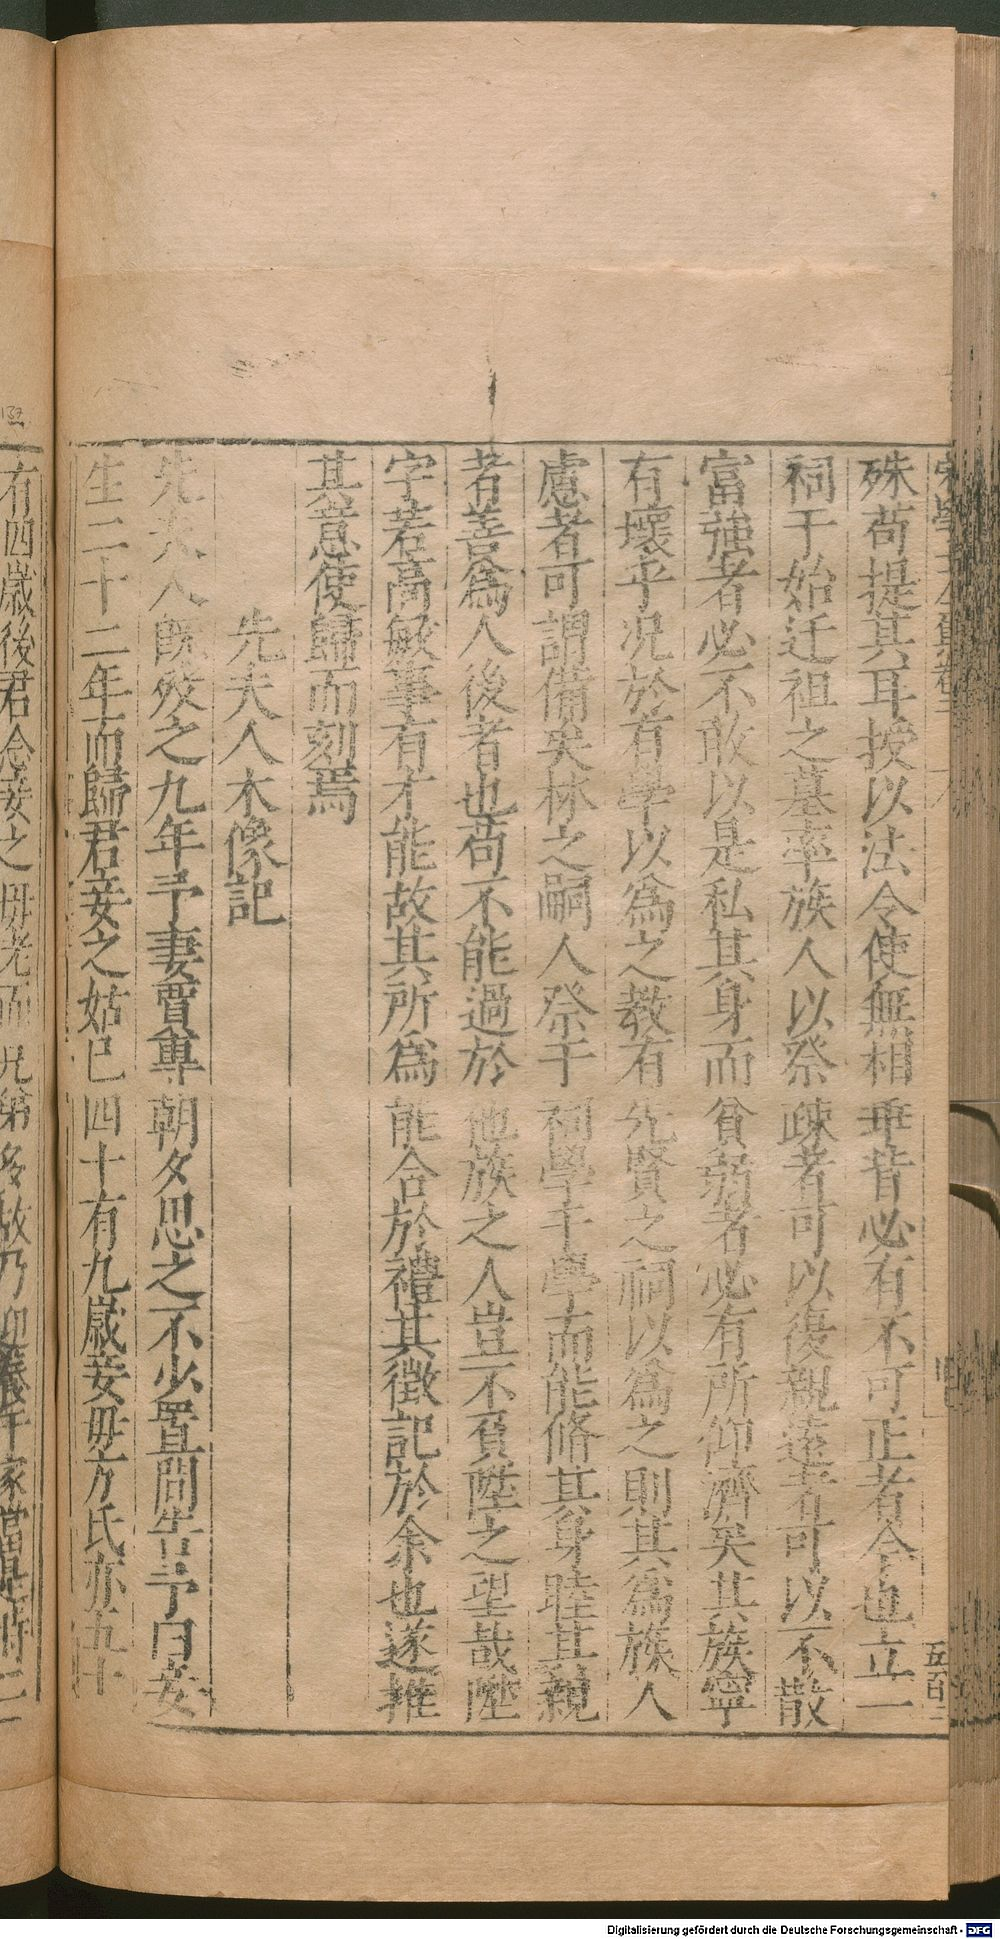 殊苟提其耳授以法令使無相乖背必有不可正者今也立一
祠于始迁祖之墓率族人以祭疎者可以復親遠者可以不散
富強者必不敢以是私其身而貧弱者必有所仰濟矣其族寧
有壞乎况於有學以為之教有先賢之祠以為之則其為族人
慮者可謂備矣林之嗣人祭于祠學于學而能脩其身睦其親
者善為人後者也苟不能過於他族之人豈不負陞之望哉陞
字若高敏事有才能故其所為能合於禮其徵記於余也遂推
其意使歸而刻焉
先夫人木像記
先夫人既歿之九年予妻賈專朝夕思之不少置間告予曰妾
生二十二年而歸君妾之姑已四十有九歲妾毋方氏亦五十
有四歲後君念妾之毋老而兄弟多故乃迎養于家當是時二
Digitalisierung gefördert durch die Deutsche Forschungsgemeinschaft - DFG